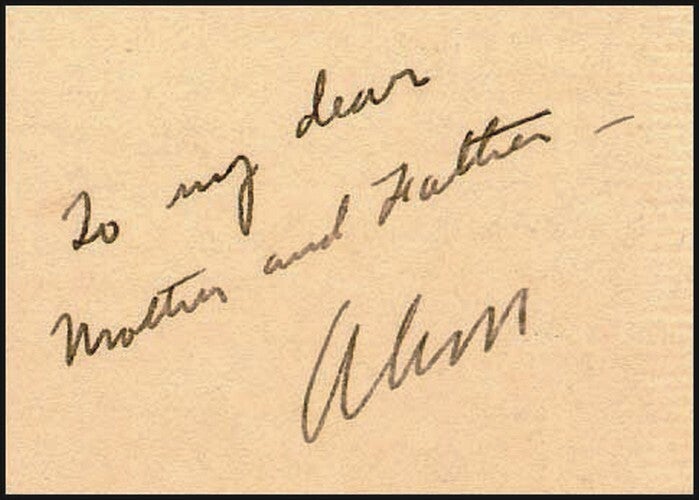 To my dear
Mother and Father —
Alan